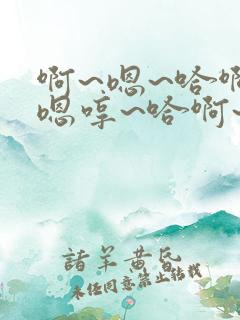 啊~嗯~哈啊
嗯哼~哈啊~
諸羊黄昏
未经同意禁止转载